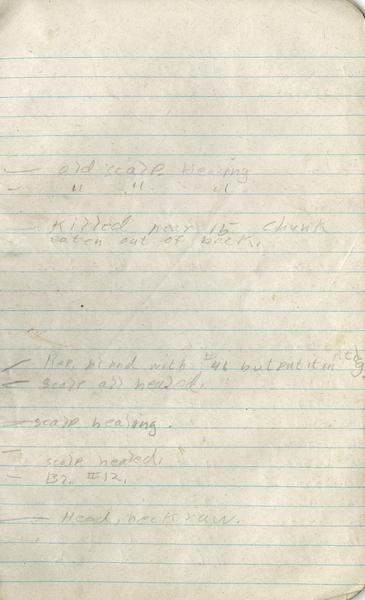 — old scalp healing
— " " "
— Killed near 15 chunk
eaten out of back.
— Rep. pinnd with # 46 but put it in
— scalp all healed.
— scalp healing.
—
scalp healed.
— Br. #12.
— Head, neck raw.